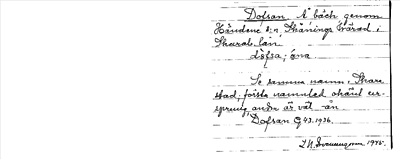 Dofsan Å bäch genom
Händene s:n, Skånings Härad i
Skarab. län
dòfsa; åna
Se samma namn i Skara
stad; första namnled okänt ur-
sprung, andra är väl -ån
Dofsan G 43. 1936.
1945.